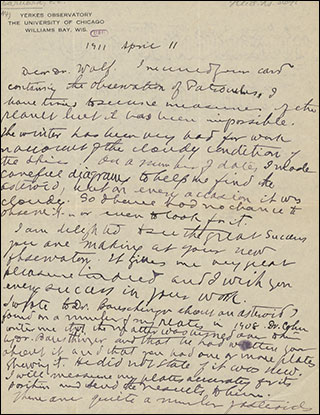 YERKES OBSERVATORY
THE UNIVERSITY OF CHICAGO
WILLIAMS BAY, WIS.
1911 April 11
Dear Dr. Wolf. I received your card
containing the observation of
I have tried to secure measures of the
planet but it has been impossible.
The winter has been very bad for work
on account of the cloudy condition of
the skies. On a number of dates, I made
careful diagrams to help me find the
asteroid, but on every occasion it was
cloudy. So I have had no chance to
observe it — or even to look for it.
I am delighted to see the great success
you are making at your new
observatory. It gives me very great
pleasure indeed and I wish you
every success in your work.
I wrote to Dr. Bauschinger about an asteroid I
found on a number of my plates in 1908. Dr. Cohn
wrote me that the matter was
Dr. Bauschinger and that he had written you
about it and that you had one or more plates
showing it. He did not state if it was new.
I will measure my plates accurately for its
position and send the results to him.
There are quite a number of asteroids